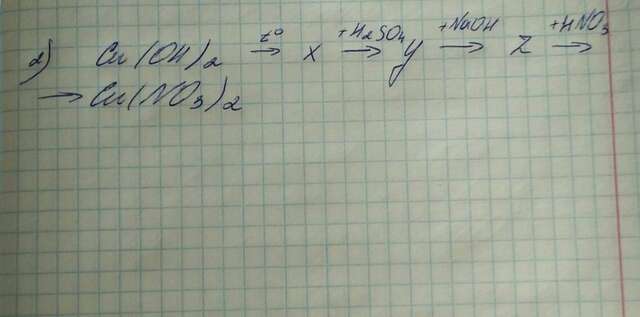 2) Cu(OH)2 t° → x +H2SO4 → y +NaOH → z +HNO3 →
→ Cu(NO3)2